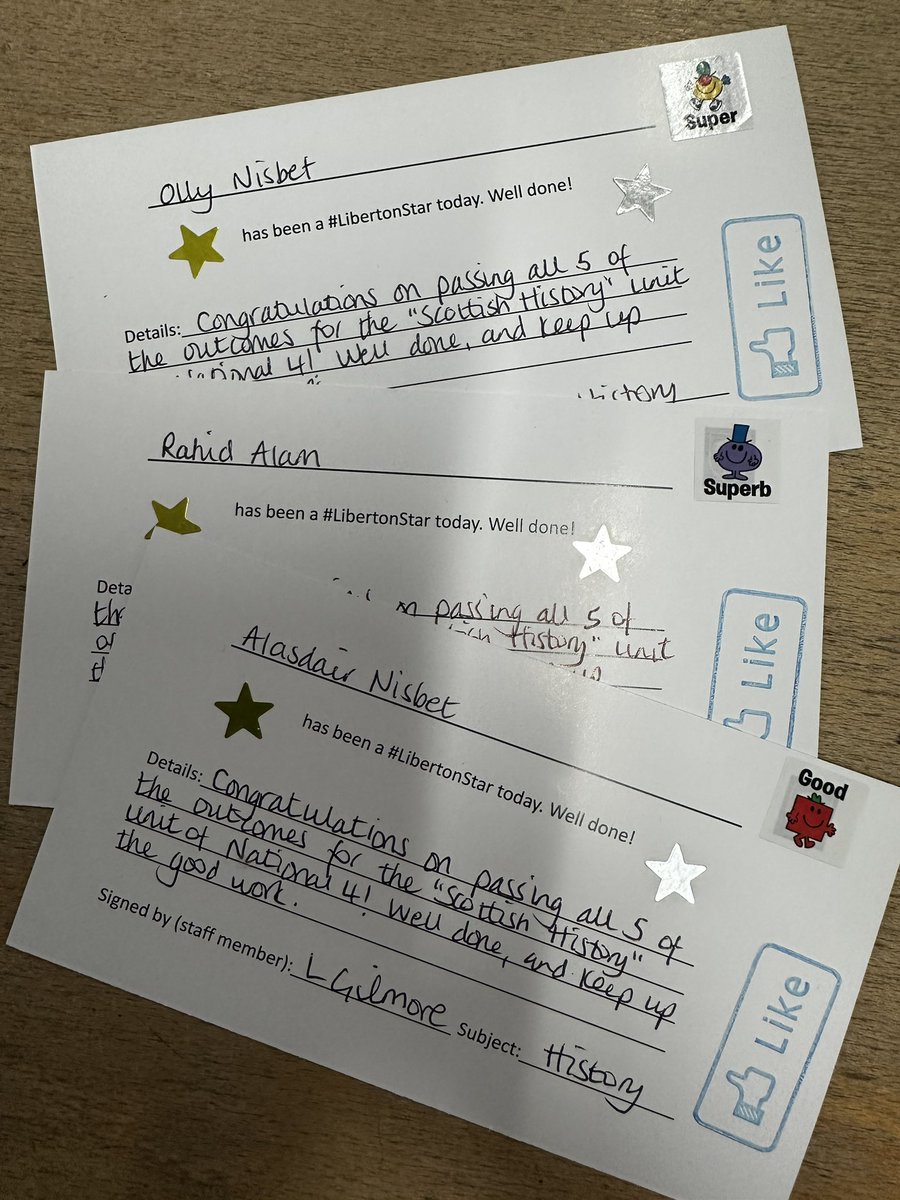 Super
Olly Nisbet
has been a #LibertonStar today. Well done!
Like
Details: Congratulations on passing all 5 of
the outcomes for the "Scottish History" unit
National 4! Well done, and keep up
History
Rahid Alam
Superb
has been a #LibertonStar today. Well done!
Like
on passing all 5 of
History" unit
Alasdair Nisbet
has been a #LibertonStar today. Well done!
Good
Details: Congratulations on passing all 5 of
the outcomes for the "Scottish History"
unit of National 4! Well done, and keep up
the good work.
Like
Signed by (staff member): L Gilmore Subject: History